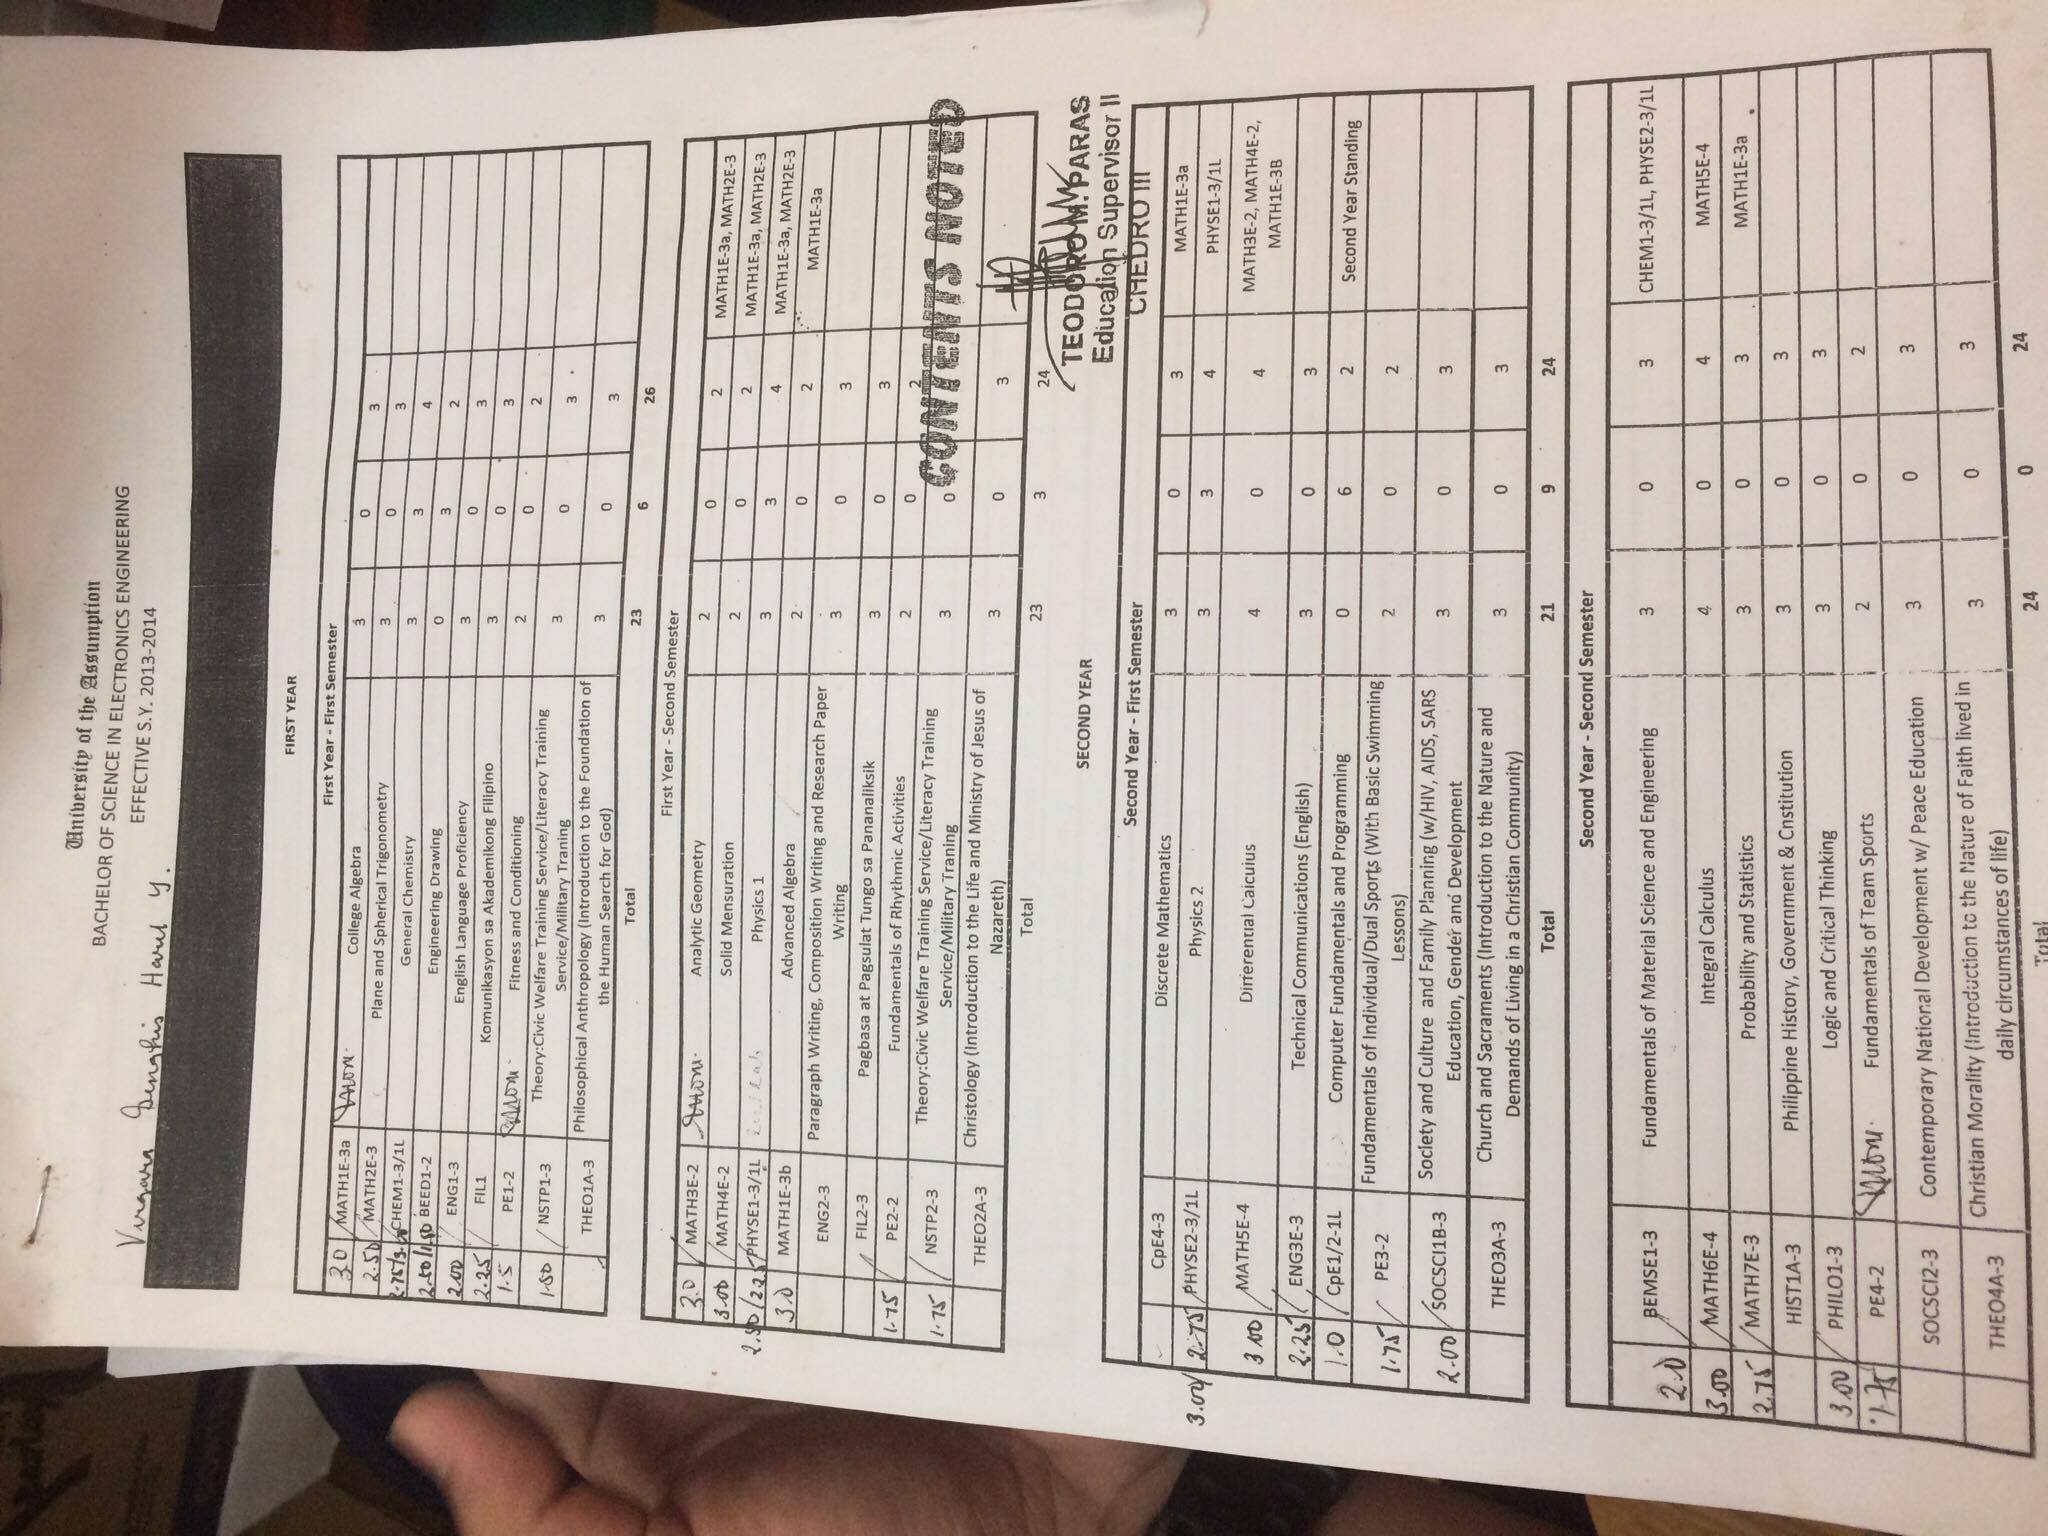 University of the Assumption
BACHELOR OF SCIENCE IN ELECTRONICS ENGINEERING
EFFECTIVE S.Y. 2013-2014
FIRST YEAR
First Year - First Semester
3.0 MATH1E-3a College Algebra 3 0 3
2.50 MATH2E-3 Plane and Spherical Trigonometry 3 0 3
CHEM1-3/1L General Chemistry 3 3 4
2.50/1.50 BEED1-2 Engineering Drawing 0 3 2
2.00 ENG1-3 English Language Proficiency 3 0 3
2.25 FIL1 Komunikasyon sa Akademikong Filipino 3 0 3
1.5 PE1-2 Fitness and Conditioning 2 0 2
1.50 NSTP1-3 Theory:Civic Welfare Training Service/Literacy Training
Service/Military Traning 3 0 3
THEO1A-3 Philosophical Anthropology (Introduction to the Foundation of
the Human Search for God) 3 0 3
Total 23 6 26
First Year - Second Semester
3.0 MATH3E-2 Analytic Geometry 2 0 2 MATH1E-3a, MATH2E-3
3.00 MATH4E-2 Solid Mensuration 2 0 2 MATH1E-3a, MATH2E-3
2.50/2.25 PHYSE1-3/1L Physics 1 3 3 4 MATH1E-3a, MATH2E-3
3.0 MATH1E-3b Advanced Algebra 2 0 2 MATH1E-3a
ENG2-3 Paragraph Writing, Composition Writing and Research Paper
Writing 3 0 3
FIL2-3 Pagbasa at Pagsulat Tungo sa Pananaliksik 3 0 3
1.75 PE2-2 Fundamentals of Rhythmic Activities 2 0 2
1.75 NSTP2-3 Theory:Civic Welfare Training Service/Literacy Training
Service/Military Traning 3 0
THEO2A-3 Christology (Introduction to the Life and Ministry of Jesus of
Nazareth) 3 0 3
Total 23 3 24
CONTENTS NOTED
TEODORO M. PARAS
Education Supervisor II
CHEDRO III
SECOND YEAR
Second Year - First Semester
CpE4-3 Discrete Mathematics 3 0 3 MATH1E-3a
3.00/2.75 PHYSE2-3/1L Physics 2 3 3 4 PHYSE1-3/1L
3.00 MATH5E-4 Differential Calculus 4 0 4 MATH3E-2, MATH4E-2,
MATH1E-3B
2.25 ENG3E-3 Technical Communications (English) 3 0 3
1.0 CpE1/2-1L Computer Fundamentals and Programming 0 6 2 Second Year Standing
1.75 PE3-2 Fundamentals of Individual/Dual Sports (With Basic Swimming
Lessons) 2 0 2
2.00 SOCSCI1B-3 Society and Culture and Family Planning (w/HIV, AIDS, SARS
Education, Gender and Development 3 0 3
THEO3A-3 Church and Sacraments (Introduction to the Nature and
Demands of Living in a Christian Community) 3 0 3
Total 21 9 24
Second Year - Second Semester
2.0 BEMSE1-3 Fundamentals of Material Science and Engineering 3 0 3 CHEM1-3/1L, PHYSE2-3/1L
3.00 MATH6E-4 Integral Calculus 4 0 4 MATH5E-4
2.75 MATH7E-3 Probability and Statistics 3 0 3 MATH1E-3a
HIST1A-3 Philippine History, Government & Cnstitution 3 0 3
3.00 PHILO1-3 Logic and Critical Thinking 3 0 3
1.75 PE4-2 Fundamentals of Team Sports 2 0 2
SOCSCI2-3 Contemporary National Development w/ Peace Education 3 0 3
THEO4A-3 Christian Morality (Introduction to the Nature of Faith lived in
daily circumstances of life) 3 0 3
Total 24 0 24